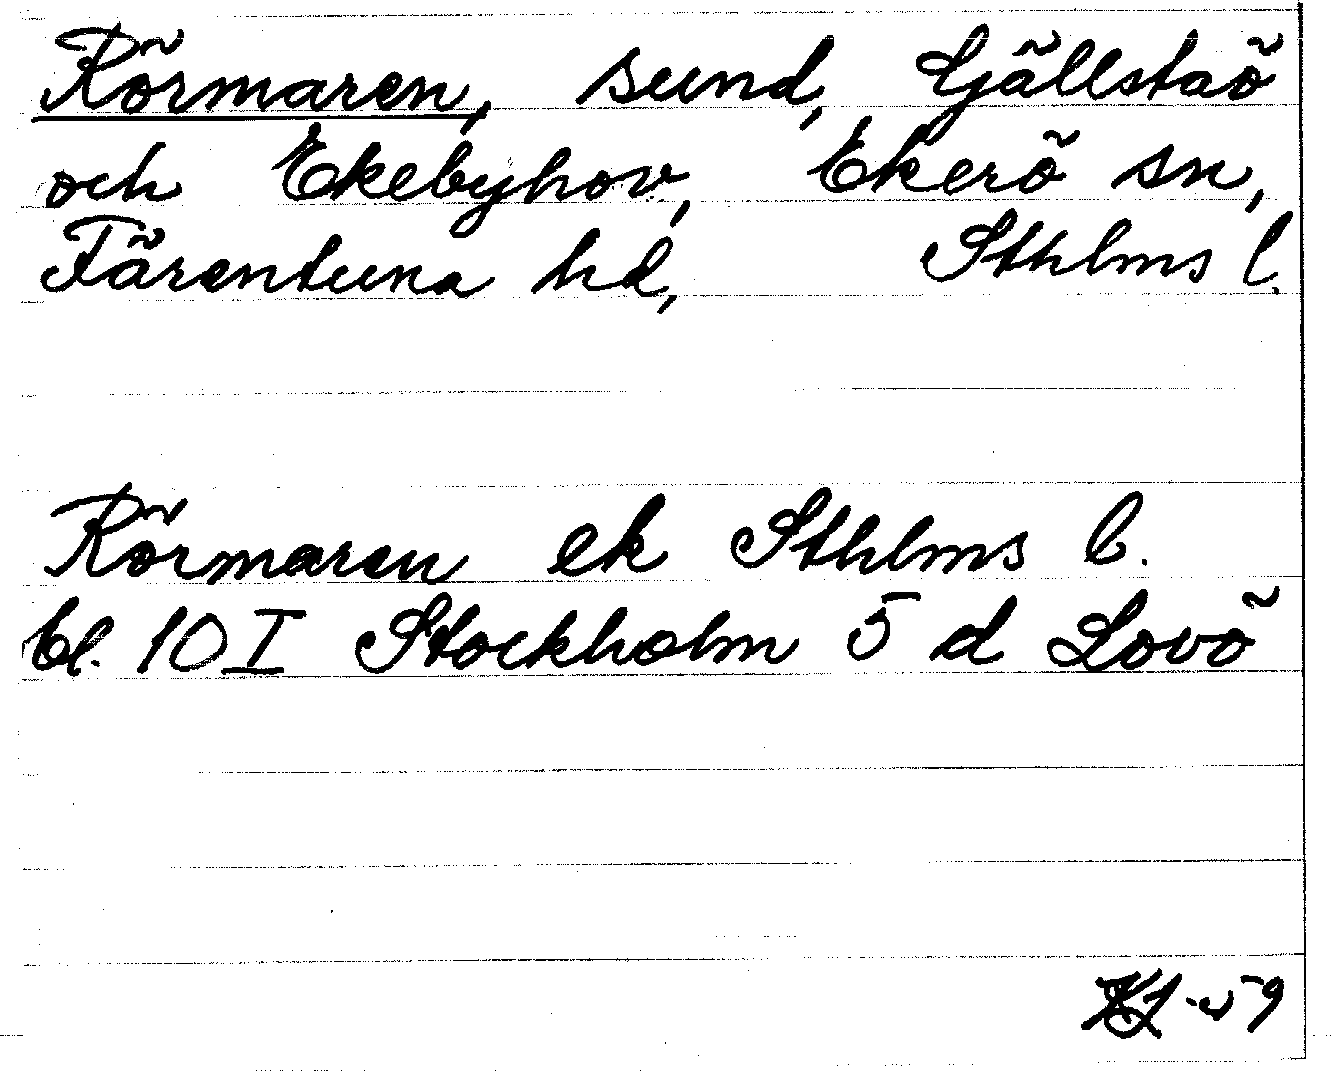 Rörmaren, sund, Gällstaö
och Ekebyhov, Ekerö sn,
Färentuna hd, Sthlms l.
Rörmaren ek Sthlms l.
bl. 10 I Stockholm 5 d Lovö
-59